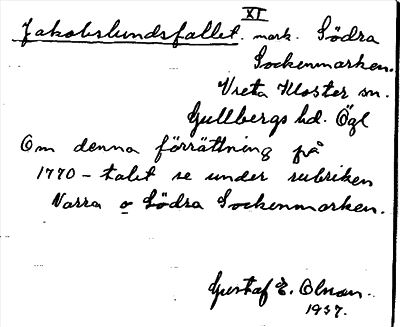 XI
Jakobslundsfallet. mark. Södra
Sockenmarken.
Vreta Kloster sn.
Gullbergs hd. Ögl
Om denna förrättning på
1770-talet se under rubriken
Norra o Södra Sockenmarken.
Gustaf E. Olsson.
1937.